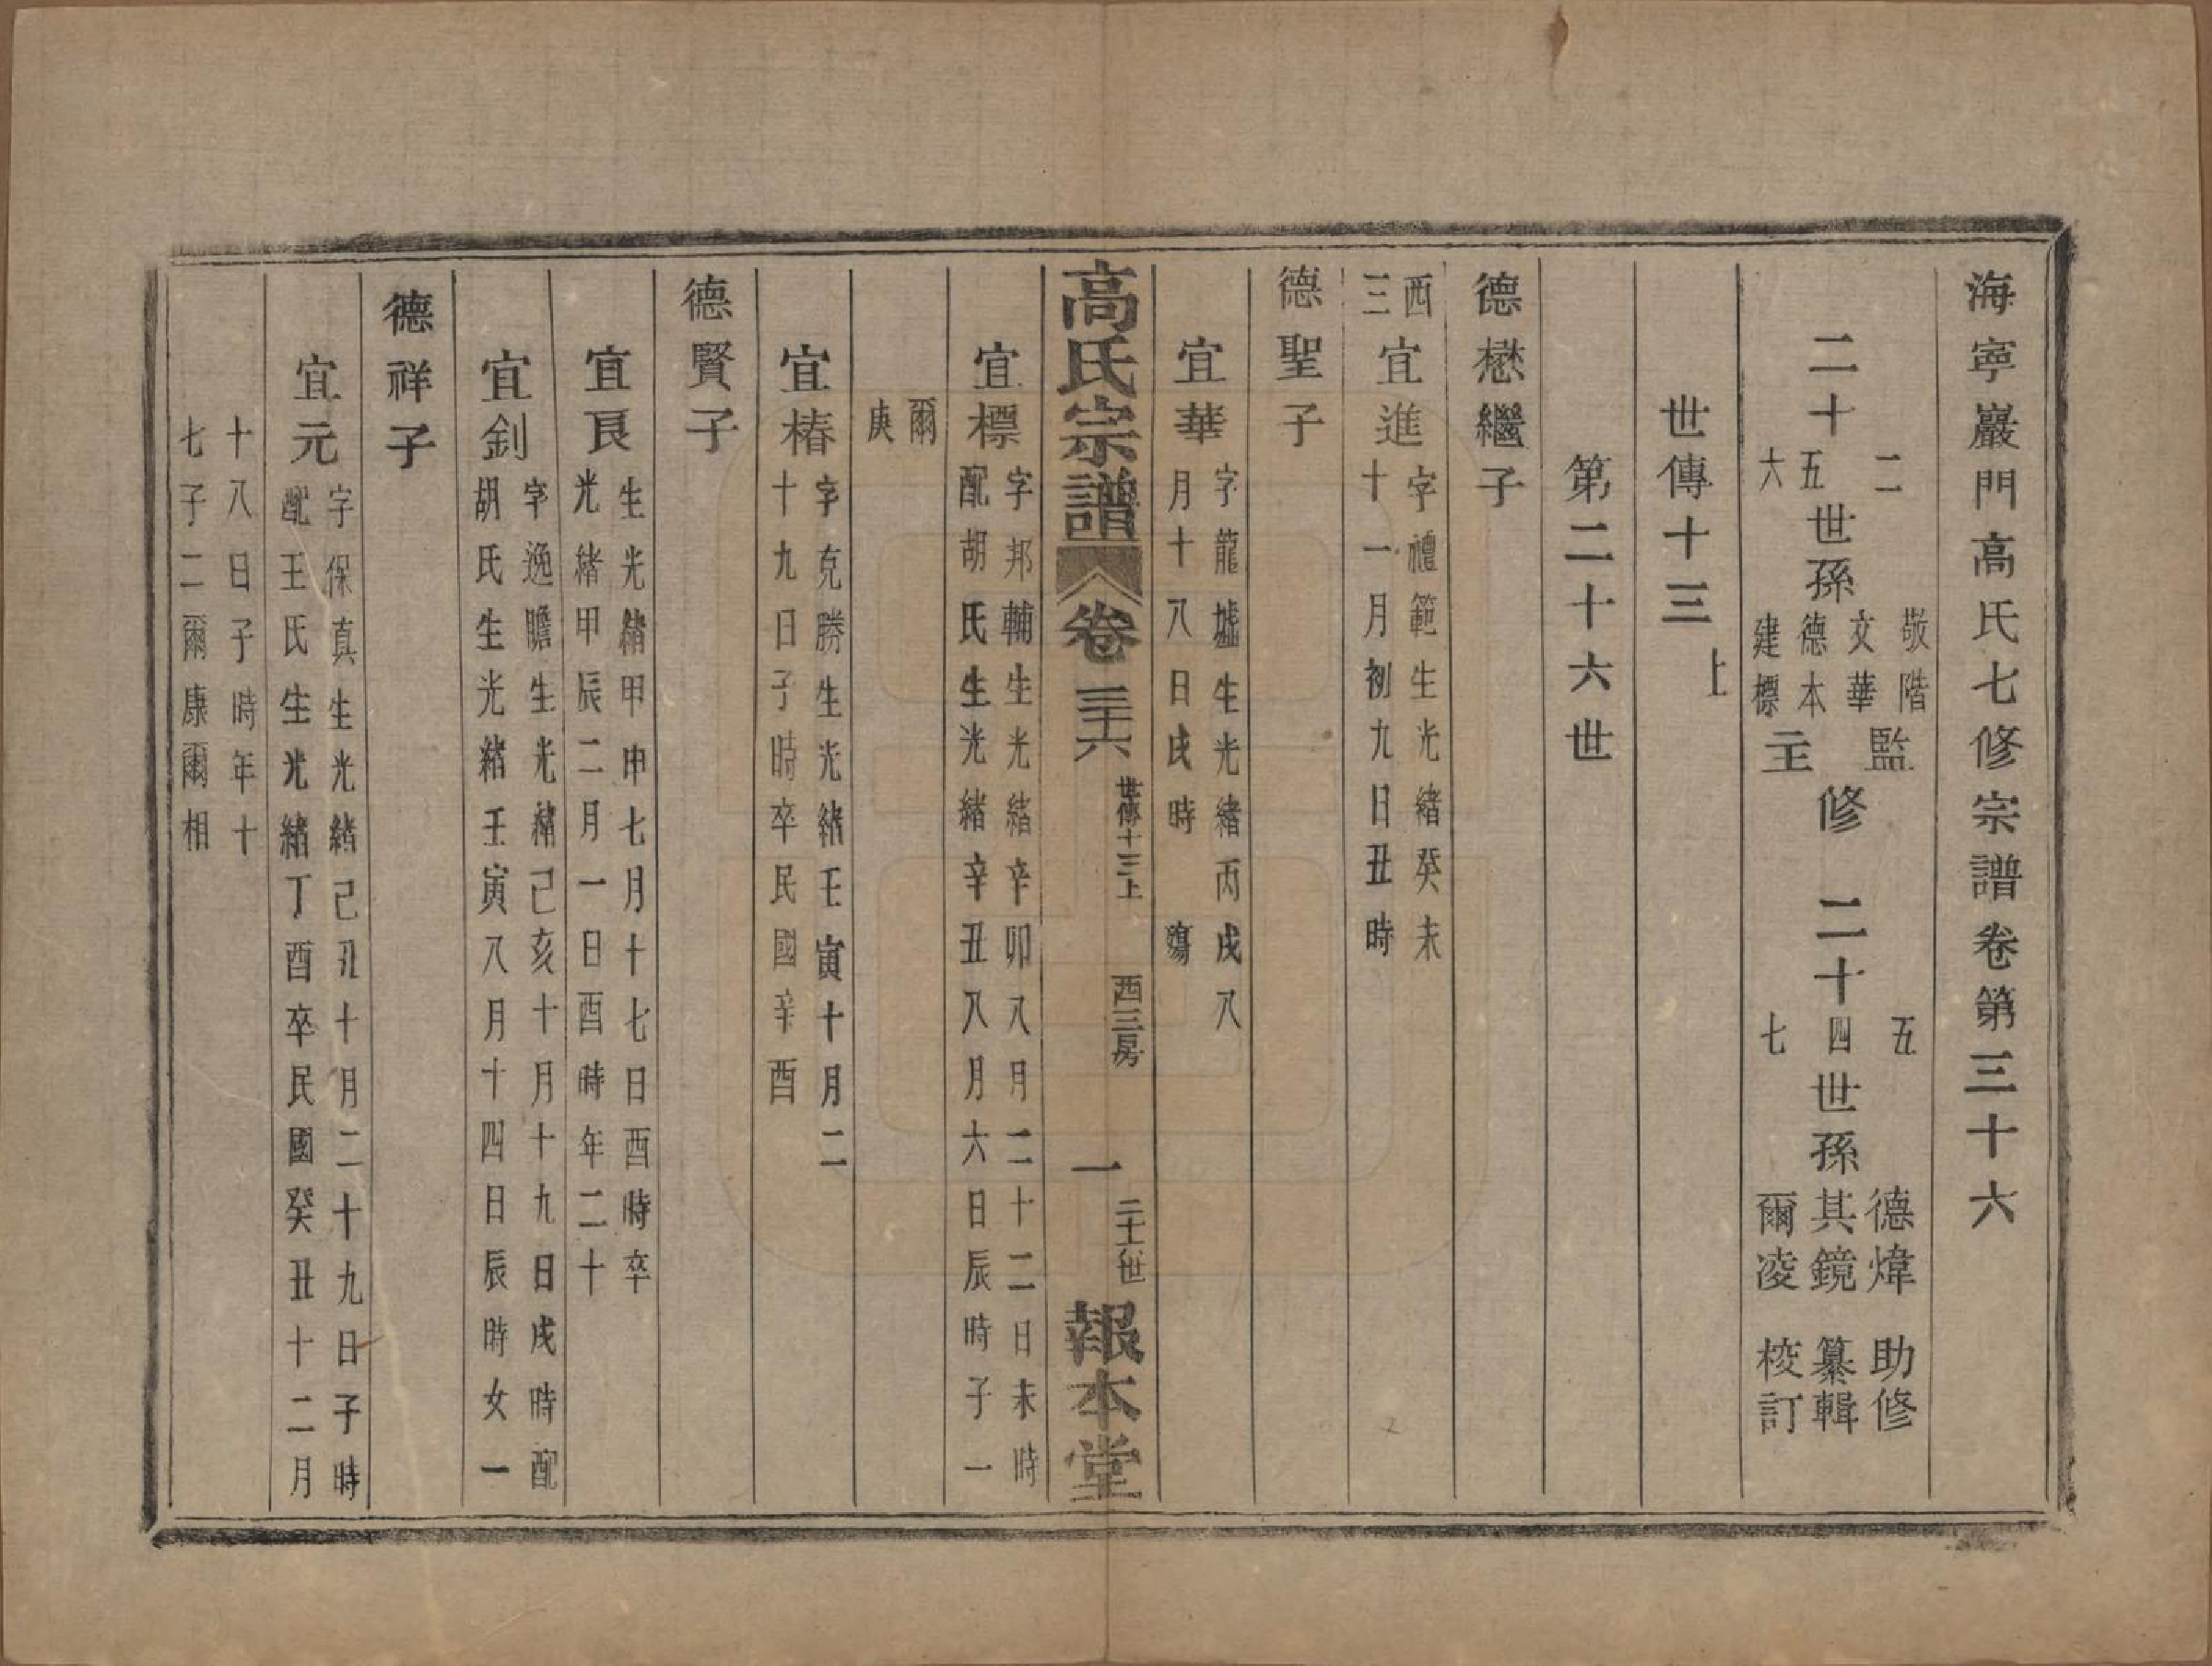 海寧巖門高氏七修宗譜卷第三十六
二十二五六世孫敬階文華德本建標監主修 二十五四七世孫德煒其鏡爾凌助修纂輯校訂
世傳十三上
第二十六世
德懋繼子
西三 宜進 字禮範生光緒癸未
十一月初九日丑時
德聖子
宜華 字龍墟生光緒丙戌八
月十八日戌時 殤
高氏宗譜 卷三十六 世傳十三上 西三房 一 二十六世 報本堂
宜標 字邦輔生光緒辛卯八月二十二日未時
配胡氏生光緒辛丑八月六日辰時子一
爾
庚
宜椿 字克勝生光緒壬寅十月二
十九日子時卒民國辛酉
德賢子
宜良 生光緒甲申七月十七日酉時卒
光緒甲辰二月一日酉時年二十
宜釗 字逸瞻生光緒己亥十月十九日戌時配
胡氏生光緒壬寅八月十四日辰時女一
德祥子
宜元 字保真生光緒己丑十月二十九日子時
配王氏生光緒丁酉卒民國癸丑十二月
十八日子時年十
七子二爾康爾相